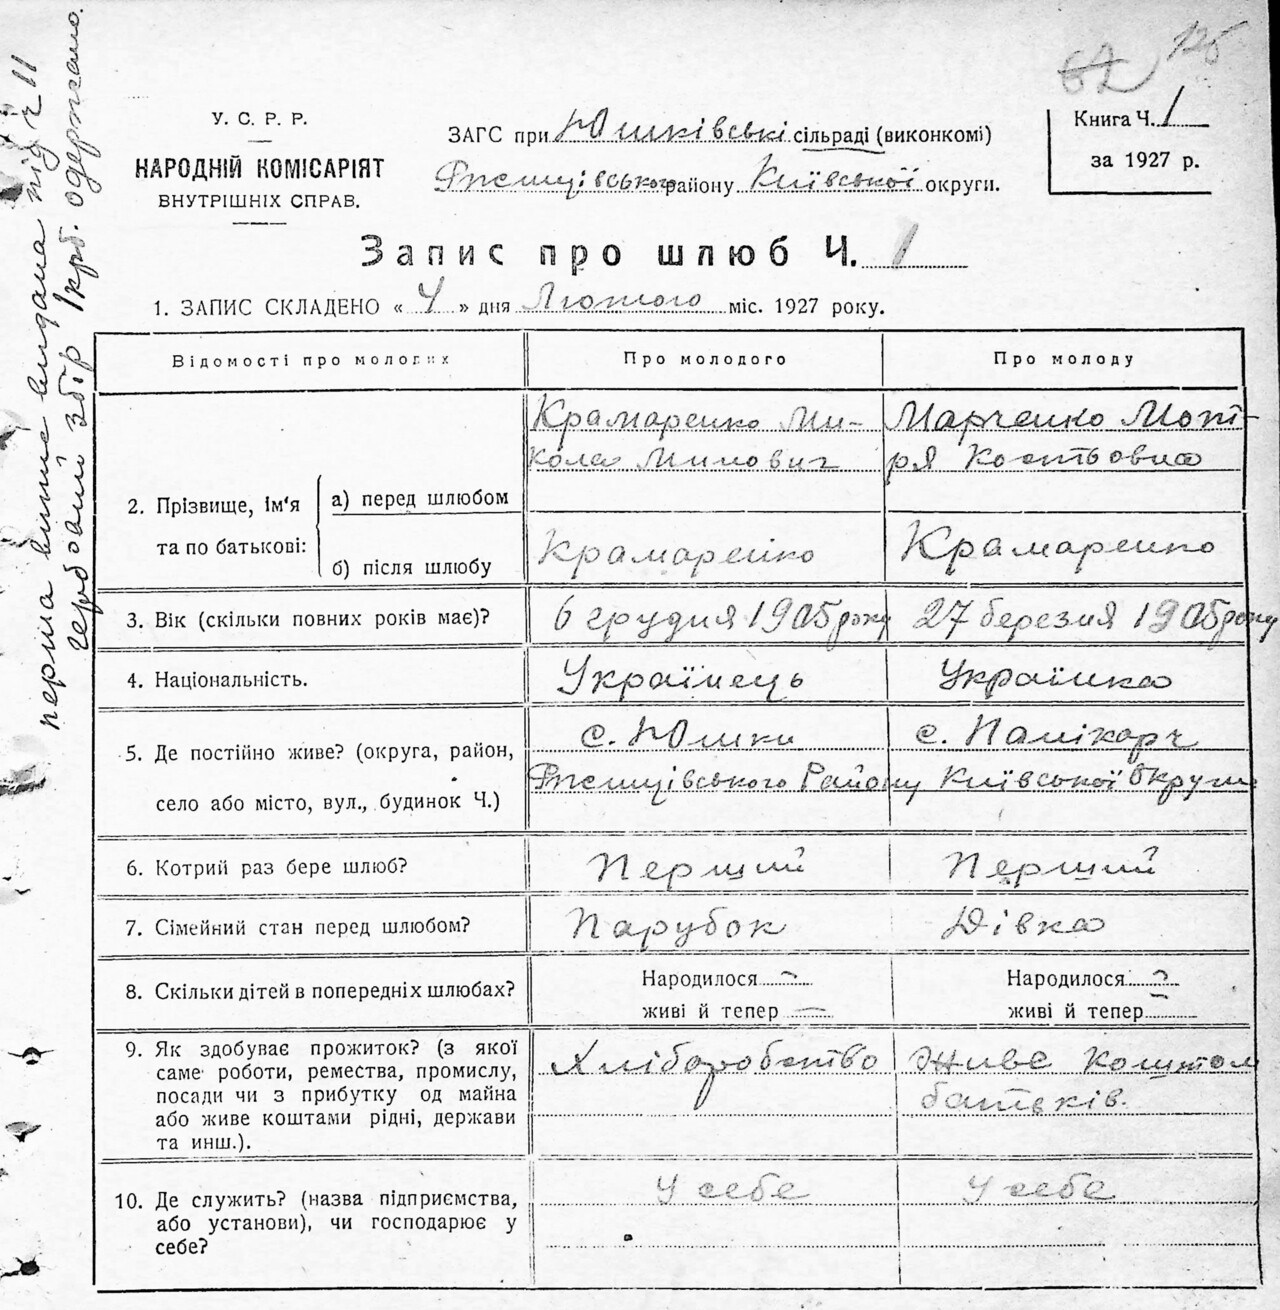 125
62
У. С. Р. Р.
НАРОДНІЙ КОМІСАРІЯТ
ВНУТРІШНІХ СПРАВ.
ЗАГС при Юшківські сільраді (виконкомі)
Ржищівського району Київської округи.
Книга Ч. 1
за 1927 р.
Запис про шлюб Ч. 1
1. ЗАПИС СКЛАДЕНО « 4 » дня Лютого міс. 1927 року.
Відомості про молодих
Про молодого
Про молоду
2. Прізвище, ім'я та по батькові:
а) перед шлюбом
Крамаренко Ми-
кола Минович
Марченко Мот-
ря Костьовна
б) після шлюбу
Крамаренко
Крамаренко
3. Вік (скільки повних років має)?
6 грудня 1905 року
27 березня 1905 року
4. Національність.
Українець
Українка
5. Де постійно живе? (округа, район,
село або місто, вул., будинок Ч.)
с. Юшки
с. Панікарч
Ржищівського Району Київської Округи
6. Котрий раз бере шлюб?
Перший
Перший
7. Сімейний стан перед шлюбом?
Парубок
Дівка
8. Скільки дітей в попередніх шлюбах?
Народилося —
живі й тепер —
Народилося —
живі й тепер —
9. Як здобуває прожиток? (з якої
саме роботи, ремества, промислу,
посади чи з прибутку од майна
або живе коштами рідні, держави
та инш.).
Хліборобство
Живе коштом
батьків.
10. Де служить? (назва підприємства,
або установи), чи господарює у
себе?
У себе
У себе
перша випис видана під ч 11
гербовий збір 1 крб. одержано.